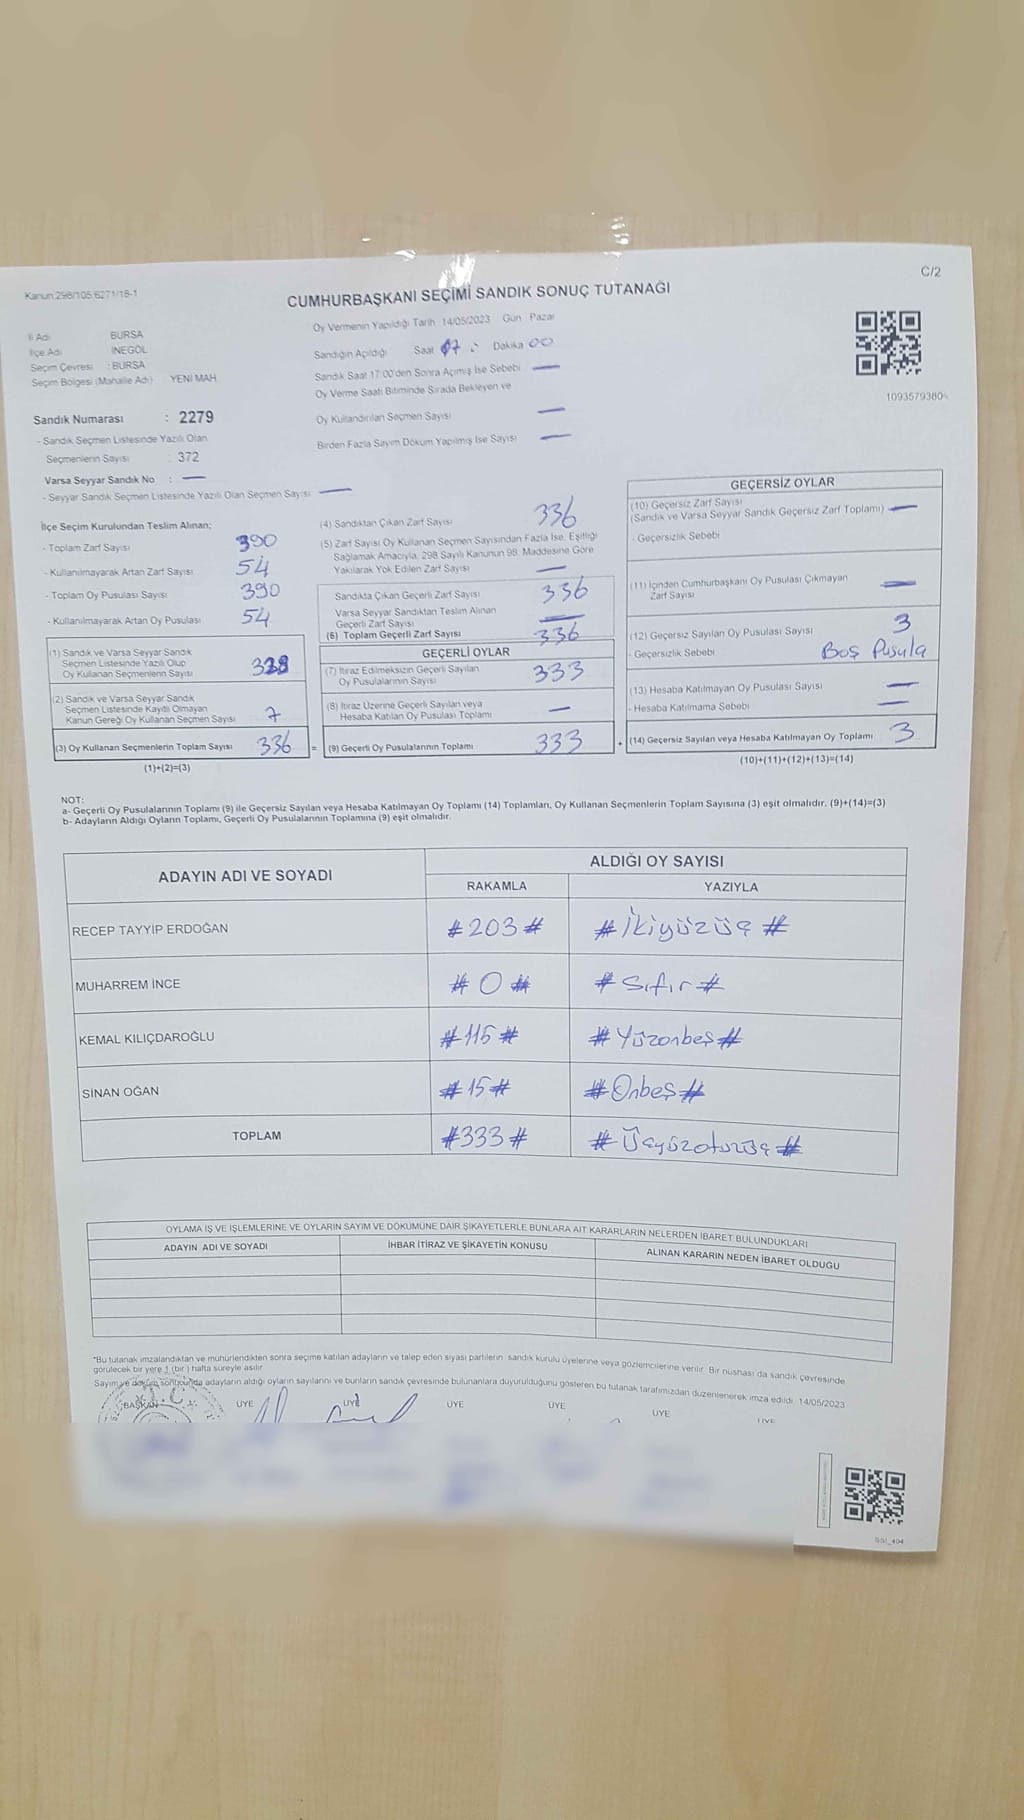 Kanun:298/105 6271/18-1
C/2
CUMHURBAŞKANI SEÇİMİ SANDIK SONUÇ TUTANAĞI
İl Adı BURSA
İlçe Adı İNEGÖL
Seçim Çevresi : BURSA
Seçim Bölgesi (Mahalle Adı) YENİ MAH.
Oy Vermenin Yapıldığı Tarih 14/05/2023 Gün Pazar
Sandığın Açıldığı Saat 17 : Dakika 00
Sandık Saat 17:00'den Sonra Açılmış İse Sebebi —
Oy Verme Saati Bitiminde Sırada Bekleyen ve
Oy Kullandırılan Seçmen Sayısı —
Birden Fazla Sayım Döküm Yapılmış İse Sayısı —
Sandık Numarası : 2279
- Sandık Seçmen Listesinde Yazılı Olan
Seçmenlerin Sayısı : 372
Varsa Seyyar Sandık No : —
- Seyyar Sandık Seçmen Listesinde Yazılı Olan Seçmen Sayısı —
İlçe Seçim Kurulundan Teslim Alınan;
- Toplam Zarf Sayısı 390
- Kullanılmayarak Artan Zarf Sayısı 54
- Toplam Oy Pusulası Sayısı 390
- Kullanılmayarak Artan Oy Pusulası 54
(1) Sandık ve Varsa Seyyar Sandık
Seçmen Listesinde Yazılı Olup
Oy Kullanan Seçmenlerin Sayısı
(2) Sandık ve Varsa Seyyar Sandık
Seçmen Listesinde Kayıtlı Olmayan
Kanun Gereği Oy Kullanan Seçmen Sayısı 7
(3) Oy Kullanan Seçmenlerin Toplam Sayısı 336
(1)+(2)=(3)
(4) Sandıktan Çıkan Zarf Sayısı 336
(5) Zarf Sayısı Oy Kullanan Seçmen Sayısından Fazla İse, Eşitliği
Sağlamak Amacıyla, 298 Sayılı Kanunun 98. Maddesine Göre
Yakılarak Yok Edilen Zarf Sayısı —
Sandıkta Çıkan Geçerli Zarf Sayısı 336
Varsa Seyyar Sandıktan Teslim Alınan
Geçerli Zarf Sayısı —
(6) Toplam Geçerli Zarf Sayısı 336
GEÇERLİ OYLAR
(7) İtiraz Edilmeksizin Geçerli Sayılan
Oy Pusulalarının Sayısı 333
(8) İtiraz Üzerine Geçerli Sayılan veya
Hesaba Katılan Oy Pusulası Toplamı —
= (9) Geçerli Oy Pusulalarının Toplamı 333
GEÇERSİZ OYLAR
(10) Geçersiz Zarf Sayısı
(Sandık ve Varsa Seyyar Sandık Geçersiz Zarf Toplamı) —
- Geçersizlik Sebebi
(11) İçinden Cumhurbaşkanı Oy Pusulası Çıkmayan
Zarf Sayısı —
(12) Geçersiz Sayılan Oy Pusulası Sayısı 3
- Geçersizlik Sebebi Boş Pusula
(13) Hesaba Katılmayan Oy Pusulası Sayısı —
- Hesaba Katılmama Sebebi —
+ (14) Geçersiz Sayılan veya Hesaba Katılmayan Oy Toplamı 3
(10)+(11)+(12)+(13)=(14)
NOT:
a- Geçerli Oy Pusulalarının Toplamı (9) ile Geçersiz Sayılan veya Hesaba Katılmayan Oy Toplamı (14) Toplamları, Oy Kullanan Seçmenlerin Toplam Sayısına (3) eşit olmalıdır. (9)+(14)=(3)
b- Adayların Aldığı Oyların Toplamı, Geçerli Oy Pusulalarının Toplamına (9) eşit olmalıdır.
ADAYIN ADI VE SOYADI ALDIĞI OY SAYISI
RAKAMLA YAZIYLA
RECEP TAYYİP ERDOĞAN #203# #İkiyüzüç#
MUHARREM İNCE #0# #Sıfır#
KEMAL KILIÇDAROĞLU #115# #Yüzonbeş#
SİNAN OĞAN #15# #Onbeş#
TOPLAM #333# #Üçyüzotuzüç#
OYLAMA İŞ VE İŞLEMLERİNE VE OYLARIN SAYIM VE DÖKÜMÜNE DAİR ŞİKAYETLERLE BUNLARA AİT KARARLARIN NELERDEN İBARET BULUNDUKLARI
ADAYIN ADI VE SOYADI İHBAR İTİRAZ VE ŞİKAYETİN KONUSU ALINAN KARARIN NEDEN İBARET OLDUĞU
*Bu tutanak imzalandıktan ve mühürlendikten sonra seçime katılan adayların ve talep eden siyasi partilerin sandık kurulu üyelerine veya gözlemcilerine verilir. Bir nüshası da sandık çevresinde
görülecek bir yere 1 (bir) hafta süreyle asılır.
Sayım ve döküm sonucunda adayların aldığı oyların sayılarını ve bunların sandık çevresinde bulunanlara duyurulduğunu gösteren bu tutanak tarafımızdan düzenlenerek imza edildi. 14/05/2023
T.C.
BAŞKAN ÜYE ÜYE ÜYE ÜYE ÜYE ÜYE